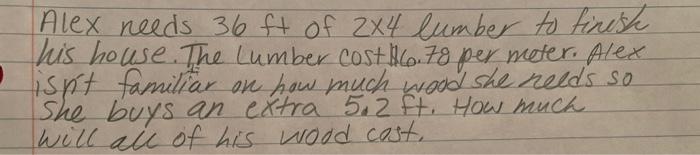 Alex needs 36 ft of 2x4 lumber to finish
his house. The lumber cost $6.78 per meter. Alex
isn't familiar on how much wood she needs so
she buys an extra 5.2 ft. How much
will all of his wood cost.